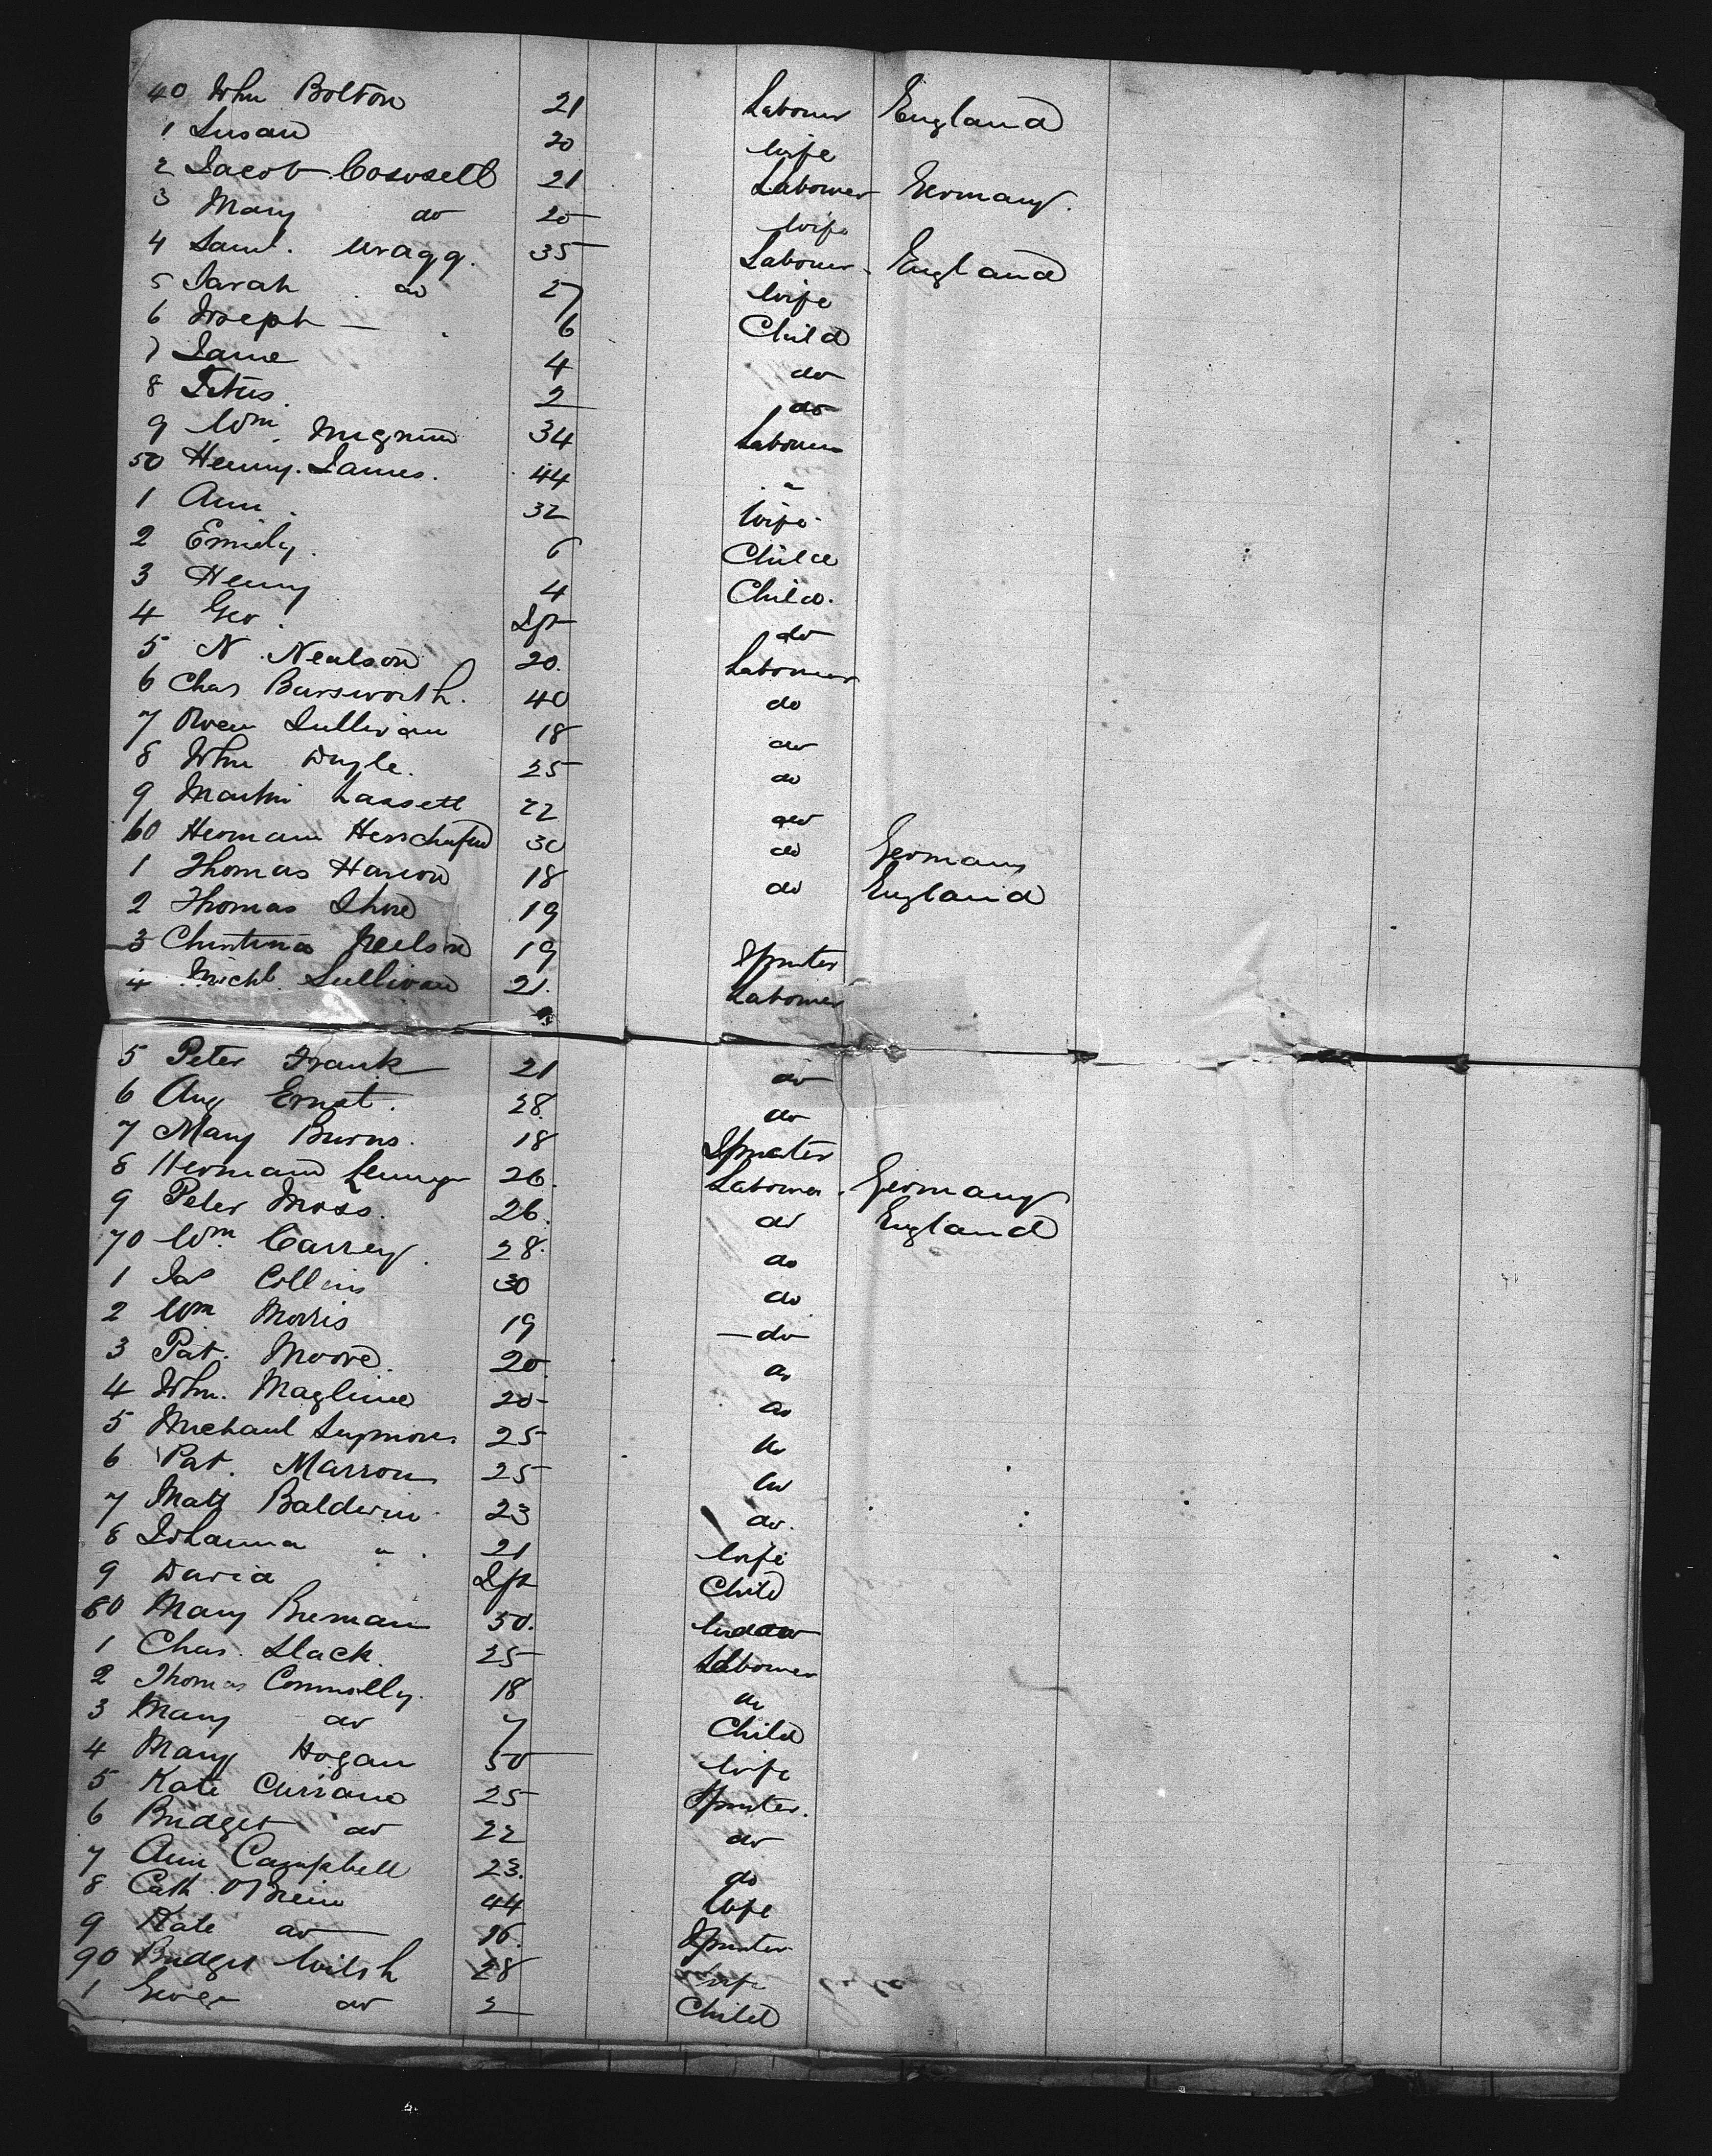 40 John Bolton 21 Labourer England
1 Susan 20 Wife
2 Jacob Coswell 21 Labourer Germany.
3 Mary do 20 Wife
4 Saml. Wragg. 35 Labourer England
5 Sarah do 27 Wife
6 Joseph — 6 Child
7 Jane 4 do
8 Titus. 2 do
9 Wm. 34 Labourer
50 Henry James. 44 "
1 Ann. 32 Wife
2 Emily. 6 Child
3 Henry 4 Child.
4 Geo. Inft do
5 N. Nealson 20. Labourer
6 Chas Barsworth. 40 do
7 Owen Sullivan 18 do
8 John Doyle. 25 do
9 Martin Lassett 22 do
60 Hermann 30 do Germany
1 Thomas Harron 18 do England
2 Thomas Shore 19
3 Christina Neilson 19 Spinster
4 Michl. Sullivan 21. Labourer
5 Peter Frank 21 do
6 Aug Ernst. 28. do
7 Mary Burns. 18 Spinster
8 Hermann 26. Labourer. Germany
9 Peter Moss. 26. do England
70 Wm. Carrey. 28. do
1 Jas Collins 30 do
2 Wm Morris 19 — do
3 Pat. Moore. 20. do
4 John. Maglinee 20 do
5 Michael Seymour 25 do
6 Pat. Marron 25 do
7 Matt Baldwin 23 do.
8 Johanna " 21 Wife
9 David Inft Child
80 Mary Brennan 50. Widow
1 Chas. Slack. 25 Labourer
2 Thomas Connolly. 18 do
3 Mary do 7 Child
4 Mary Hogan 50 Wife
5 Kate Curran 25 Spinster.
6 Bridget do 22 do
7 Ann Campbell 23. do
8 Cath. O'Brien 44 Wife
9 Kate do 16. Spinster
90 Bridget Welsh 28 Wife
1 George do 2 Child